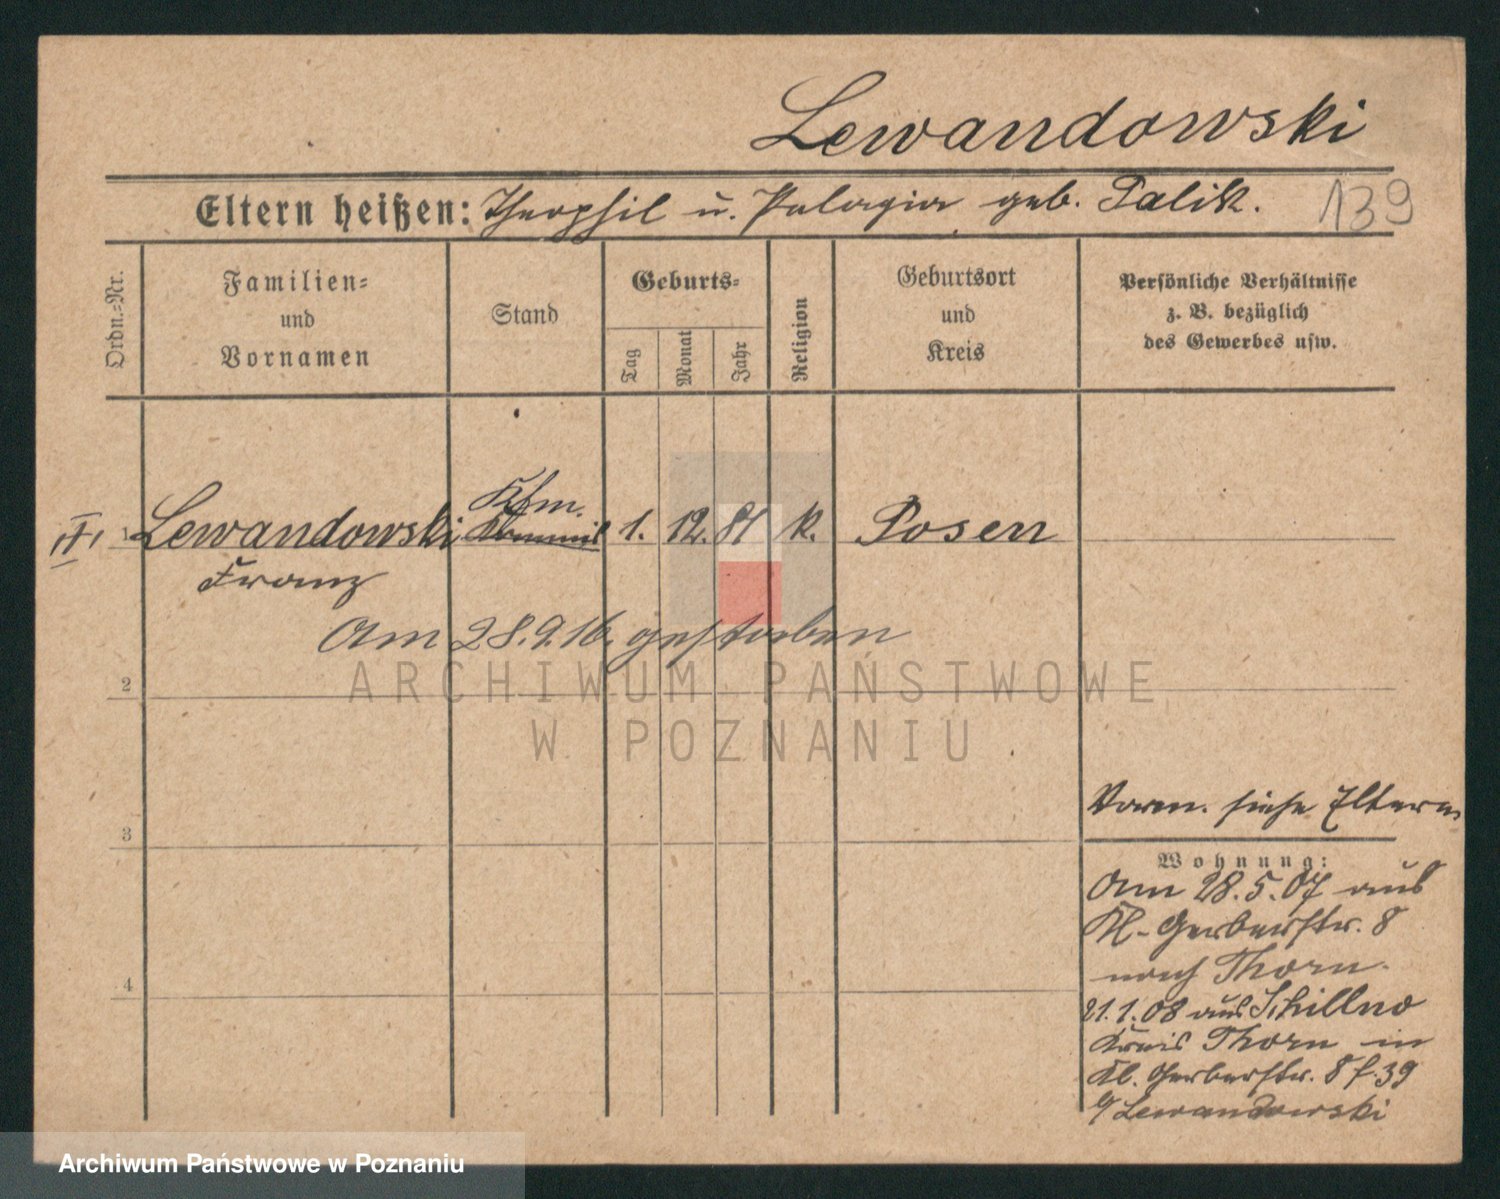 Lewandowski
Eltern heißen: Theophil u. Pelagia geb. Palik.
139
Ordn.-Nr.
Familien-
und
Vornamen
Stand
Geburts-
Tag
Monat
Jahr
Religion
Geburtsort
und
Kreis
Persönliche Verhältnisse
z. B. bezüglich
des Gewerbes usw.
Kfm.
III 1 Lewandowski Kommis 1. 12. 81 k. Posen
Franz
Am 28.9.16. gestorben
2
3
4
Vorm. siehe Eltern
Wohnung:
Am 28.5.07 aus
Kl. Gerberstr. 8
nach Thorn.
21.1.08 aus Schillno
Kreis Thorn in
Kl. Gerberstr. 8 f. 39
Lewandowski
ARCHIWUM PAŃSTWOWE
W POZNANIU
Archiwum Państwowe w Poznaniu